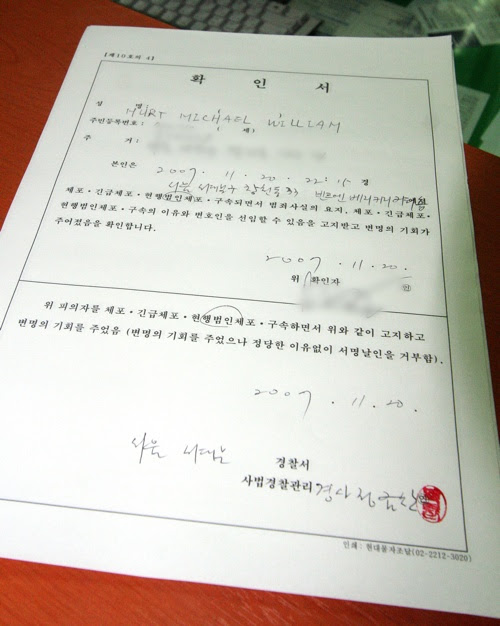 [제10호의 4]
확 인 서
성 명
HURT MICHAEL WILLIAM
주민등록번호 : ( 세)
주 거 :
본인은 2007. 11. 20. 22:15 경
서대문구 창천동
체포·긴급체포·현행범인체포·구속되면서 범죄사실의 요지, 체포·긴급체포·
현행범인체포·구속의 이유와 변호인을 선임할 수 있음을 고지받고 변명의 기회가
주어졌음을 확인합니다.
2007. 11. 20.
위 확인자
위 피의자를 체포·긴급체포·현행범인체포·구속하면서 위와 같이 고지하고
변명의 기회를 주었음 (변명의 기회를 주었으나 정당한 이유없이 서명날인을 거부함).
2007. 11. 20.
서울 서대문 경찰서
사법경찰관리 경사
인쇄 : 현대물자조달(02-2212-3020)